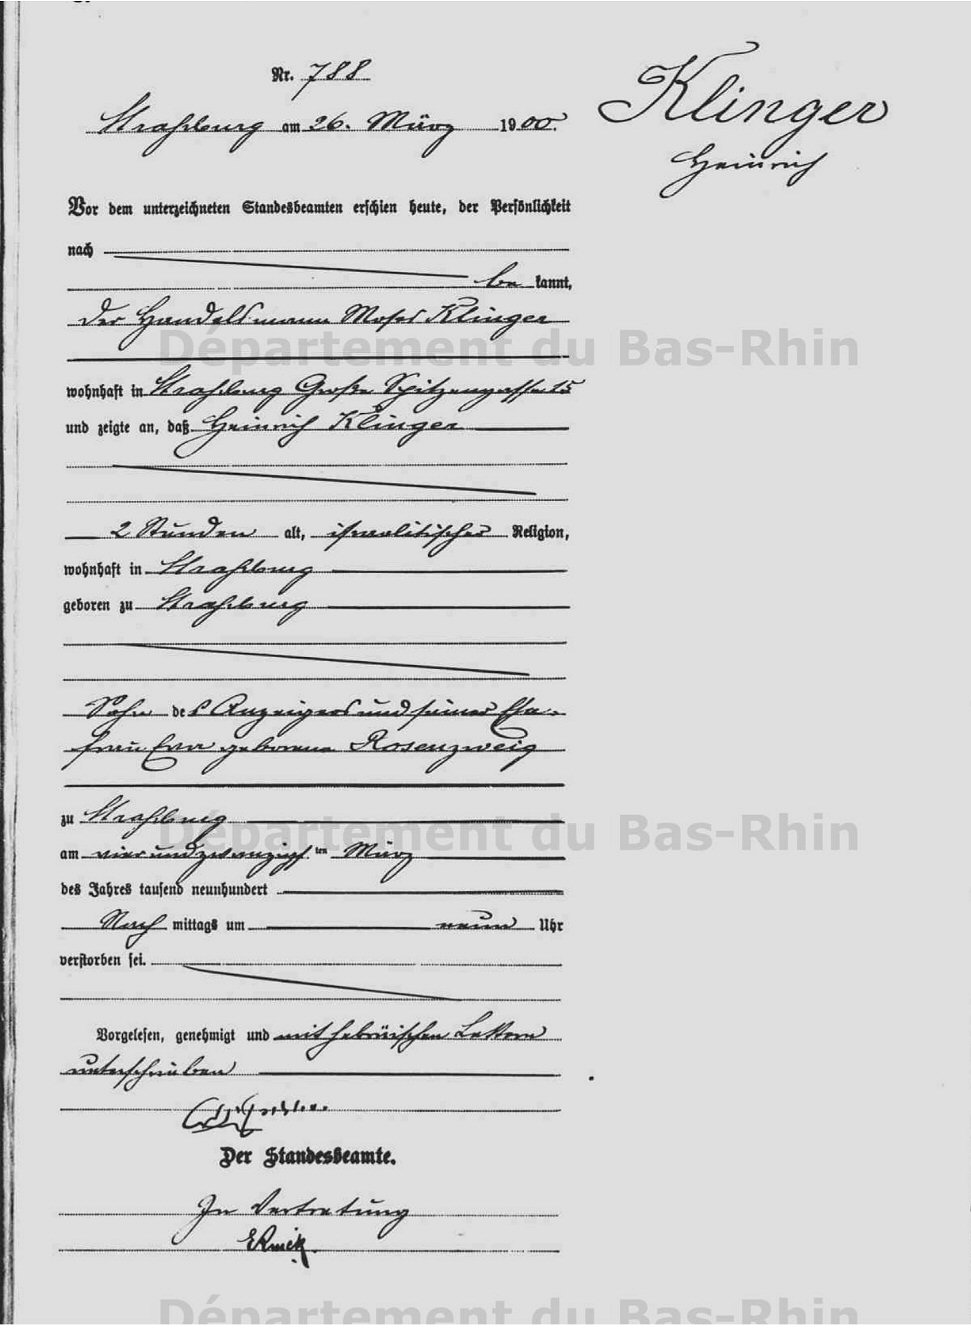 Nr. 788
Straßburg am 26. März 1900.
Klinger
Heinrich
Vor dem unterzeichneten Standesbeamten erschien heute, der Persönlichkeit
nach
be kannt,
der Handelsmann Moses Klinger
Département du Bas-Rhin
wohnhaft in Straßburg Große Spitzengasse 15
und zeigte an, daß Heinrich Klinger
2 Stunden alt, israelitischer Religion,
wohnhaft in Straßburg
geboren zu Straßburg
Sohn des Anzeigers und seiner Ehe-
frau Eva geborene Rosenzweig
zu Straßburg
Département du Bas-Rhin
am vierundzwanzigsten März
des Jahres tausend neunhundert
Nach mittags um neun Uhr
verstorben sei.
Vorgelesen, genehmigt und mit hebräischen Lettern
unterschrieben
Der Standesbeamte.
In Vertretung
Département du Bas-Rhin